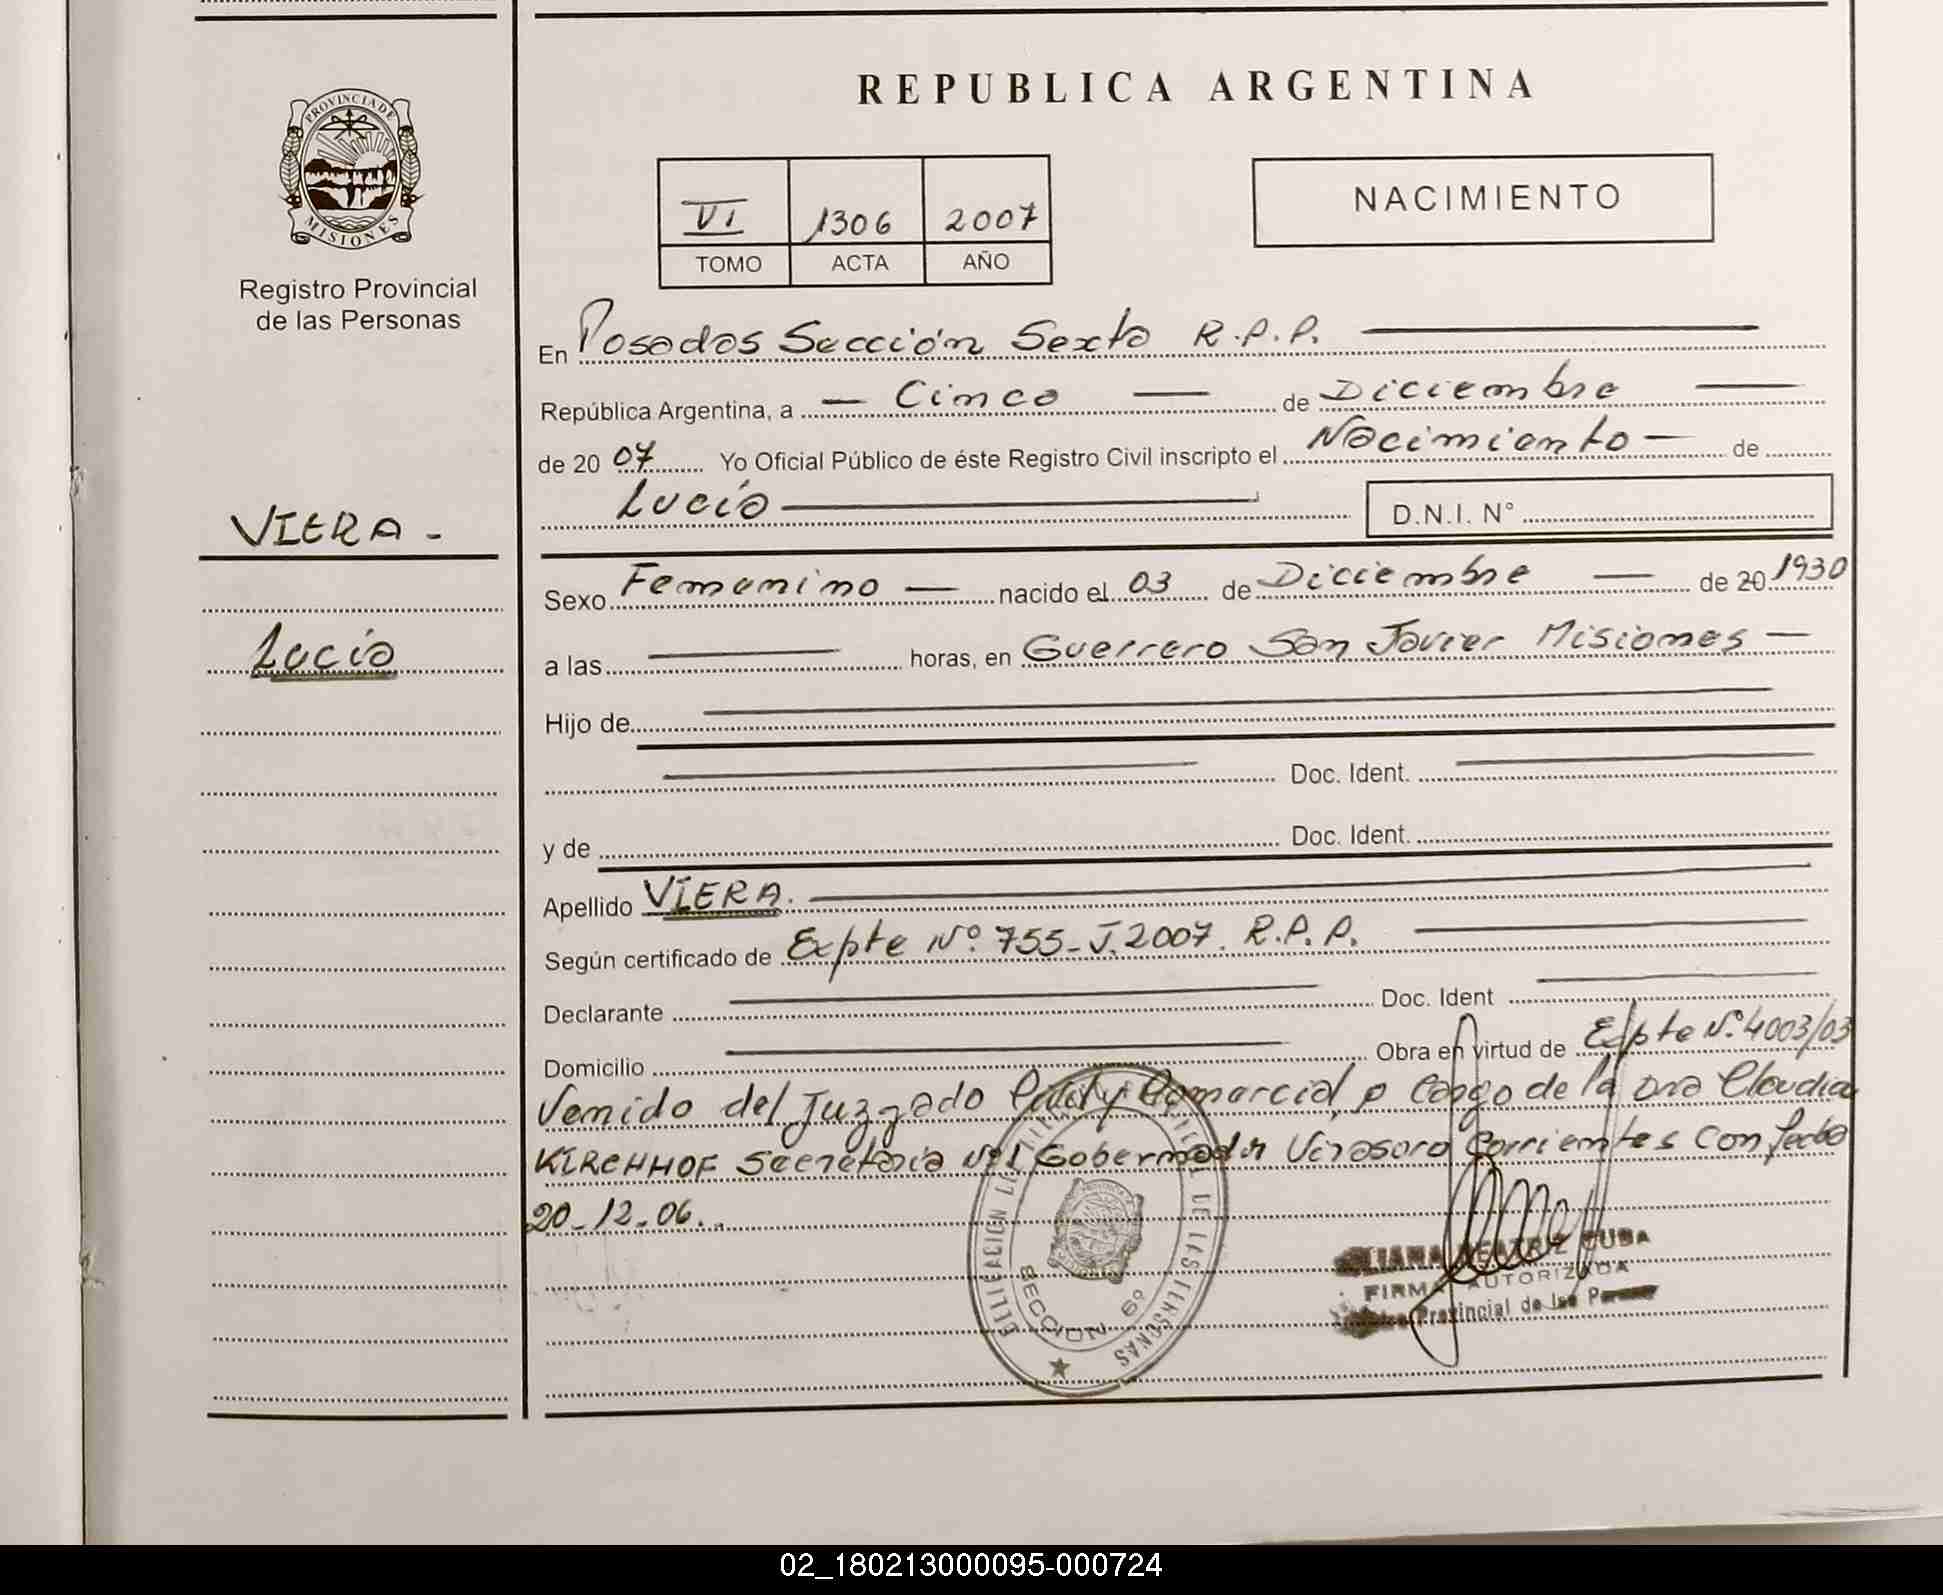 REPUBLICA ARGENTINA
PROVINCIA DE
MISIONES
Registro Provincial
de las Personas
VI 1306 2007
TOMO ACTA AÑO
NACIMIENTO
En Posadas Sección Sexta R.P.P.
República Argentina, a — Cinco — de Diciembre —
de 20 07 Yo Oficial Público de éste Registro Civil inscripto el Nacimiento — de
Lucía
D.N.I. N°
VIERA -
Lucía
Sexo Femenino — nacido el 03 de Diciembre — de 20 1930
a las — horas, en Guerrero San Javier Misiones —
Hijo de
Doc. Ident.
y de Doc. Ident.
Apellido VIERA.
Según certificado de Expte Nº 755-J.2007. R.P.P.
Declarante Doc. Ident
Domicilio Obra en virtud de Expte Nº 4003/03
Venido del Juzgado Civil y Comercial, a Cargo de la Dra Claudia
KIRCHHOF Secretaría del Gobernador Virasoro Corrientes con fecha
20-12-06.
SECCION 6º
DE LAS PERSONAS
BEATRIZ CUBA
FIRMA AUTORIZADA
Provincial de las
02_180213000095-000724